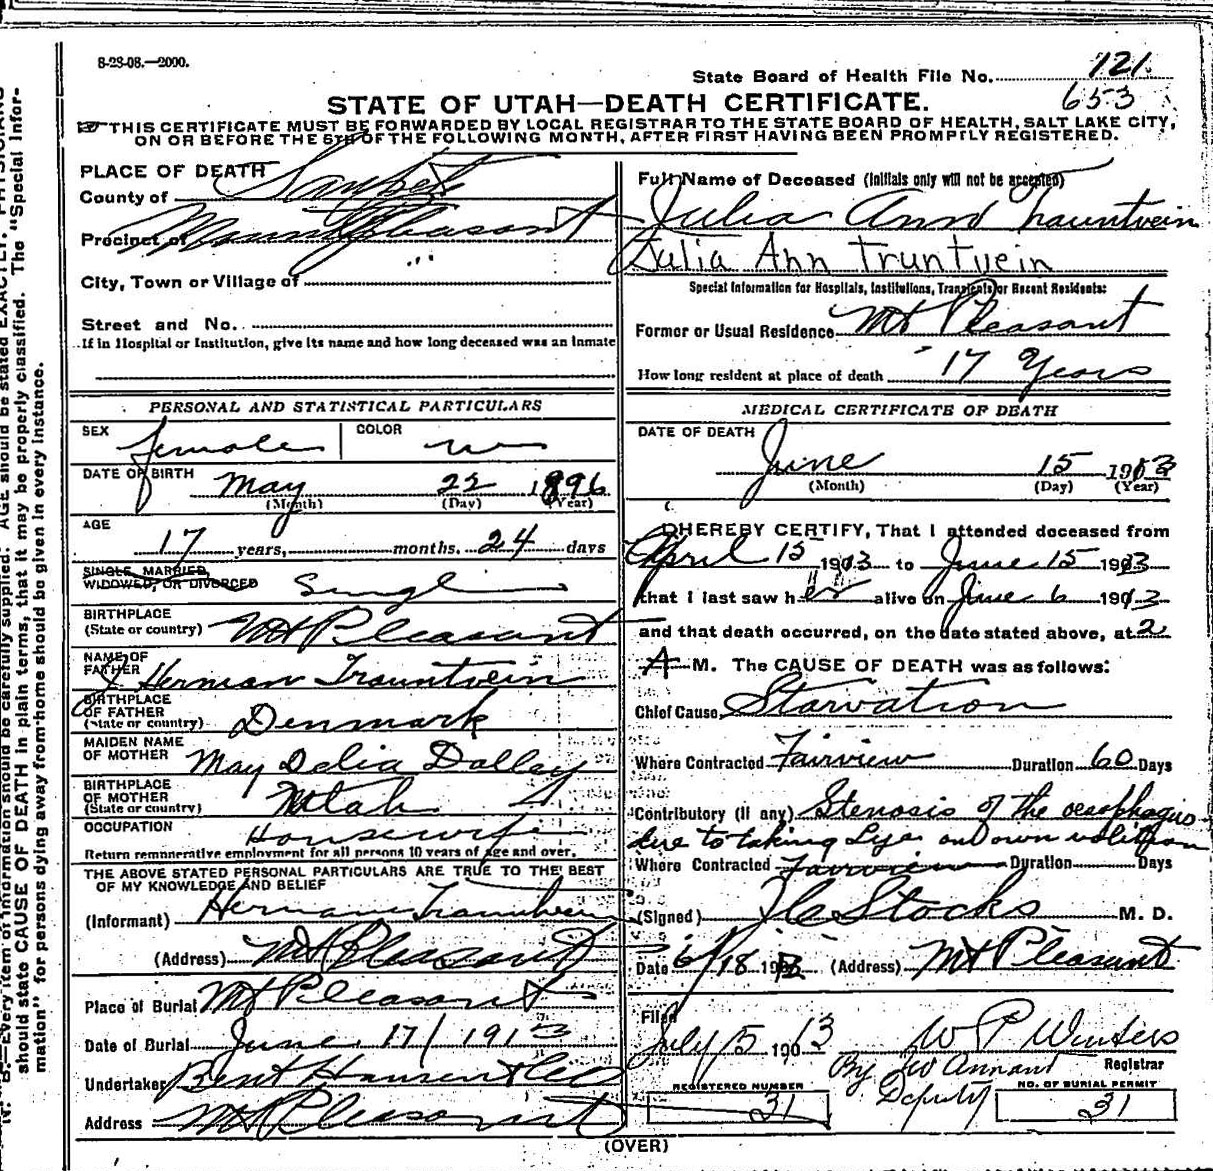 8-23-08.—2000.
State Board of Health File No. 121
653
STATE OF UTAH—DEATH CERTIFICATE.
THIS CERTIFICATE MUST BE FORWARDED BY LOCAL REGISTRAR TO THE STATE BOARD OF HEALTH, SALT LAKE CITY,
ON OR BEFORE THE 5TH OF THE FOLLOWING MONTH, AFTER FIRST HAVING BEEN PROMPTLY REGISTERED.
PLACE OF DEATH
County of Sanpete
Precinct of Mount Pleasant
City, Town or Village of
Street and No.
If in Hospital or Institution, give its name and how long deceased was an inmate
PERSONAL AND STATISTICAL PARTICULARS
SEX female COLOR w
DATE OF BIRTH May 22 1896
(Month) (Day) (Year)
AGE
17 years, months. 24 days
SINGLE, MARRIED,
WIDOWED, OR DIVORCED Single
BIRTHPLACE
(State or country) Mt Pleasant
NAME OF
FATHER J Herman Trauntvein
BIRTHPLACE
OF FATHER
(State or country) Denmark
MAIDEN NAME
OF MOTHER May Delia Dalley
BIRTHPLACE
OF MOTHER
(State or country) Utah
OCCUPATION Housewife
Return remunerative employment for all persons 10 years of age and over.
THE ABOVE STATED PERSONAL PARTICULARS ARE TRUE TO THE BEST
OF MY KNOWLEDGE AND BELIEF
(Informant) Herman Trauntvein
(Address) Mt Pleasant
Place of Burial Mt Pleasant
Date of Burial June 17/ 1913
Undertaker Bent Hansen
Address Mt Pleasant
Full Name of Deceased (Initials only will not be accepted)
Julia Ann Trauntvein
Julia Ann Truntvein
Special Information for Hospitals, Institutions, Transients, or Recent Residents:
Former or Usual Residence Mt Pleasant
How long resident at place of death 17 Years
MEDICAL CERTIFICATE OF DEATH
DATE OF DEATH
June 15 1913
(Month) (Day) (Year)
I HEREBY CERTIFY, That I attended deceased from
April 15 1913 to June 15 1913
that I last saw her alive on June 6 1913
and that death occurred, on the date stated above, at 2
A M. The CAUSE OF DEATH was as follows:
Chief Cause, Starvation
Where Contracted Fairview Duration 60 Days
Contributory (if any) Stenosis of the oesophagus
due to taking Lye on own volition
Where Contracted Fairview Duration Days
(Signed) J C Stocks M. D.
Date 6/18 1913 (Address) Mt Pleasant
Filed
July 5 1913 W P Winters
Registrar
By W Annand
Deputy
REGISTERED NUMBER
31
NO. OF BURIAL PERMIT
31
(OVER)
N. B.—Every item of information should be carefully supplied. AGE should be stated EXACTLY. PHYSICIANS
should state CAUSE OF DEATH in plain terms, that it may be properly classified. The "Special Infor-
mation" for persons dying away from home should be given in every instance.